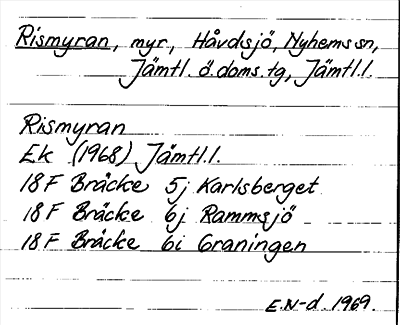 Rismyran, myr, Håvdsjö, Nyhems sn,
Jämtl. ö. doms. tg, Jämtl. l.
Rismyran
Ek (1968) Jämtl. l.
18 F Bräcke 5j Karlsberget
18 F Bräcke 6j Rammsjö
18 F Bräcke 6i Graningen
E.N-d. 1969.